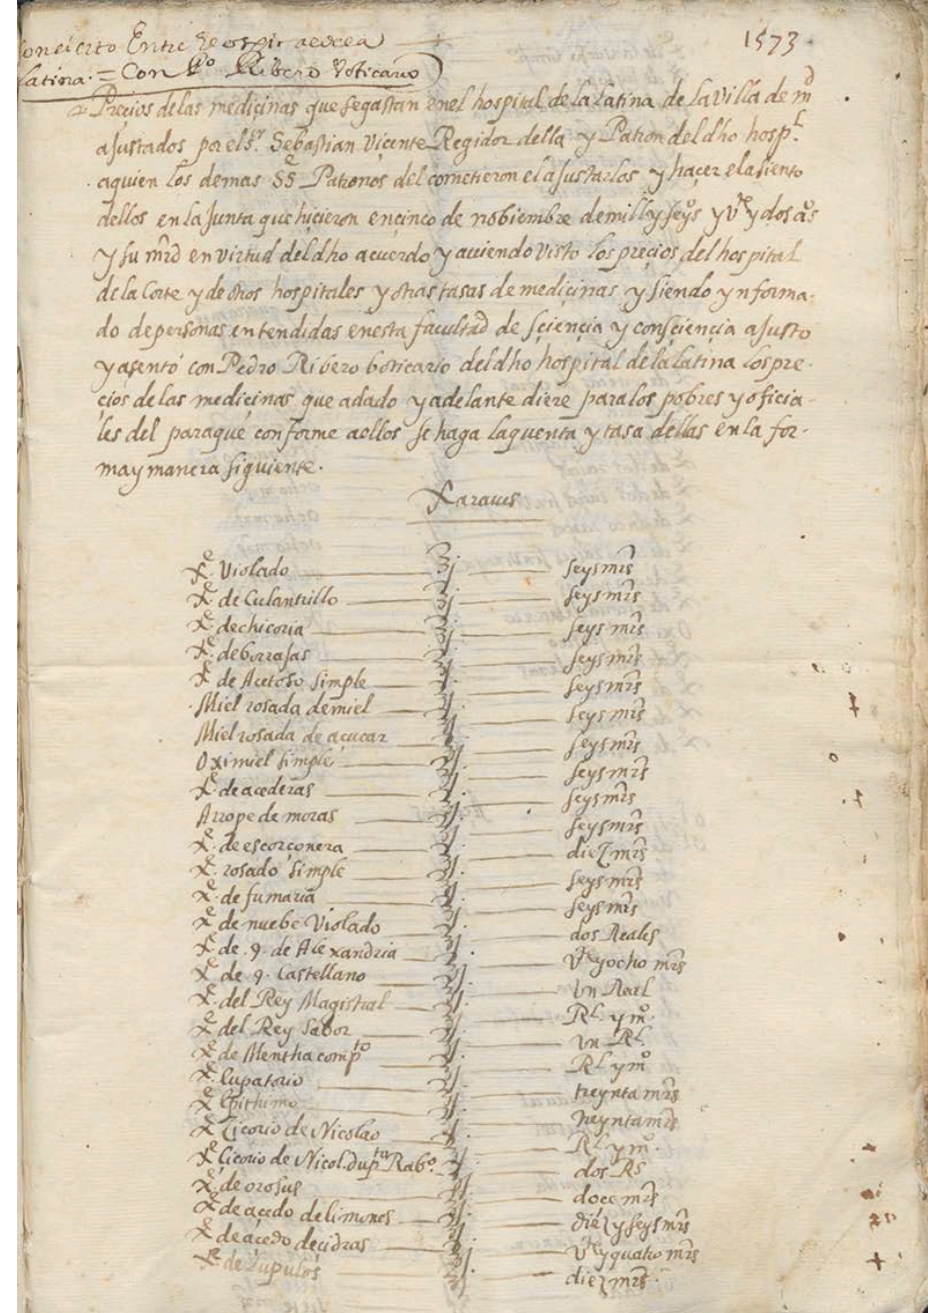 1573
Concierto Entre el ospital de la
latina = Con Po Ribero boticario
Precios de las medicinas que se gastan en el hospital de la Latina de la Villa de md
ajustados por el sr. Sebastian Vicente Regidor della y Patron del dho hospl.
a quien los demas SSes Patronos del cometieron el ajustarlos y hacer el asiento
dellos en la Junta que hicieron en cinco de nobiembre de mill y seyso y Vte y dos as
y su mrd en virtud del dho acuerdo y auiendo visto los precios del hospital
de la Corte y de otros hospitales y otras tasas de medicinas y siendo ynforma-
do de personas entendidas en esta facultad de sciencia y consciencia ajusto
y asentó con Pedro Ribero boticario del dho hospital de la Latina los pre-
cios de las medicinas que a dado y adelante diere para los pobres y oficia-
les del para que conforme a ellos se haga la quenta y tasa dellas en la for-
ma y manera siguiente.
Xaraues
Xe. Violado ℥j. seys mrs
Xe. de Culantrillo ℥j. seys mrs
Xe. de chicoria ℥j. seys mrs
Xe. de borrajas ℥j. seys mrs
Xe. de Acetoso simple ℥j. seys mrs
Miel rosada de miel ℥j. seys mrs
Miel rosada de açucar ℥j. seys mrs
Oximiel simple ℥j. seys mrs
Xe. de acederas ℥j. seys mrs
Arrope de moras ℥j. seys mrs
Xe. de escorconera ℥j. diez mrs
Xe. rosado simple ℥j. seys mrs
Xe. de fumaria ℥j. seys mrs
Xe. de nuebe Violado ℥j. dos Reales
Xe. de .9. de Alexandria ℥j. Vte y ocho mrs
Xe. de 9. Castellano ℥j. Un Real
Xe. del Rey Magistral ℥j. Rl. y mo.
Xe. del Rey Sabor ℥j. un Rl.
Xe. de Mentha compto ℥j. Rl. y mo
Xe. Eupatorio ℥j. treynta mrs
Xe. Epithimo ℥j. treynta mrs
Xe. Cicorio de Nicolao ℥j. Rl. y mo.
Xe. Cicorio de Nicol. dupta Rabo. ℥j. dos Rs
Xe. de orosus ℥j. doce mrs
Xe. de acedo de limones ℥j. diez y seys mrs
Xe. de acedo de cidras ℥j. Vte y quatro mrs
Xe. de Lupulos ℥j. diez mrs.